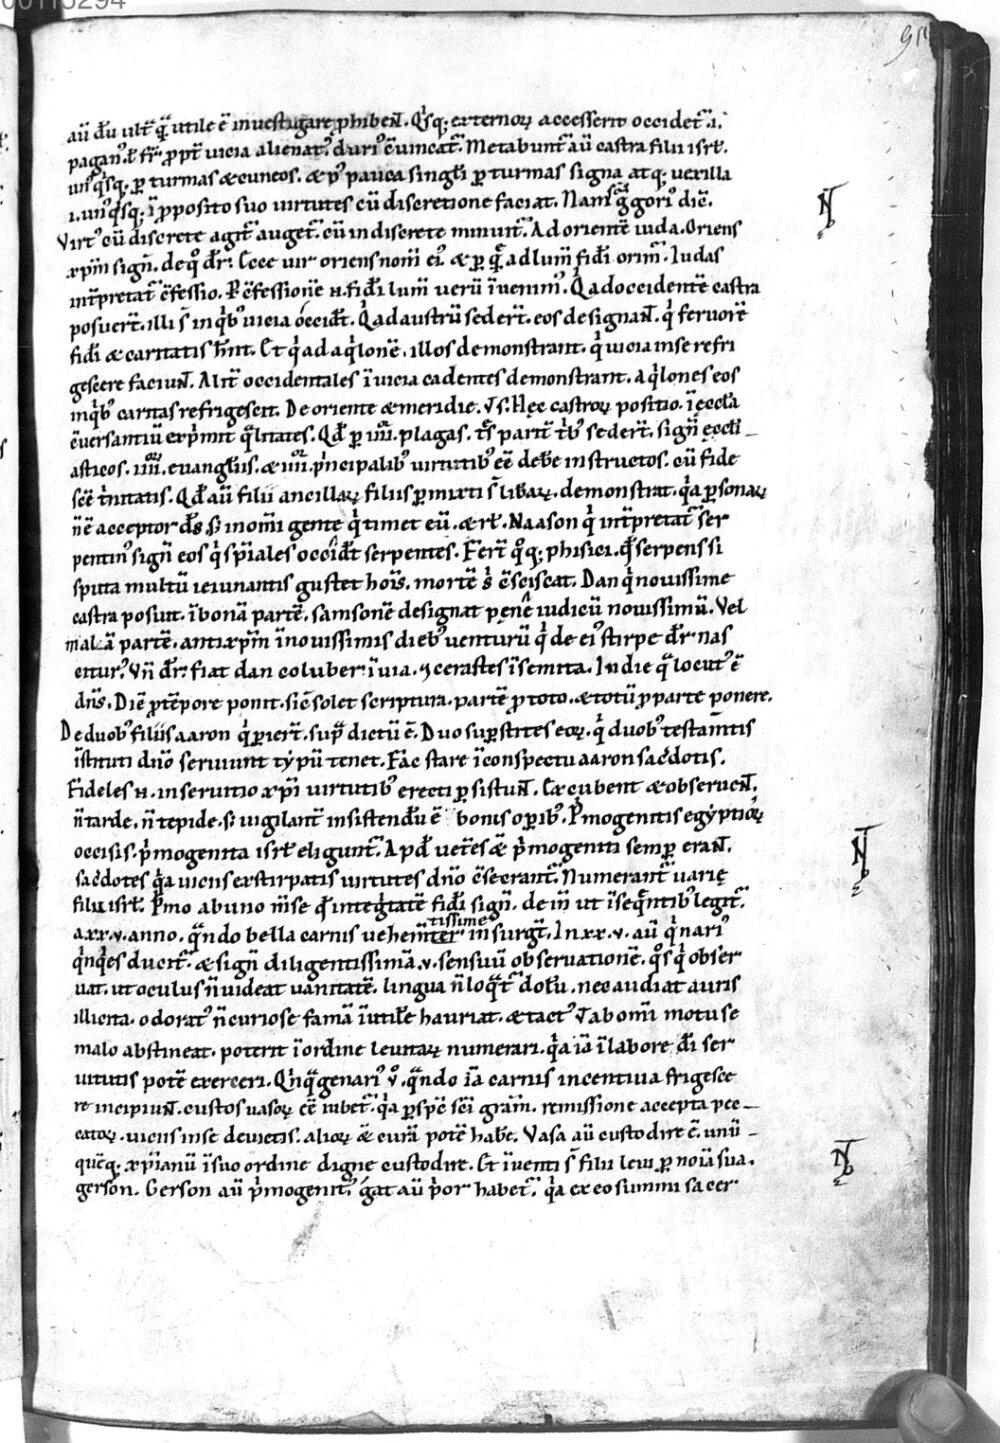 00113294
95
aū dm̄ ultͣ qͣ utile ē inuestigare ꝓhibent̄. Qͥsq; externoꝝ accesserit occidet᷑. i.
paganꝰ. ł fr̄ ꝓpt̄ uicia alienatꝰ. durꝰ c̄uincat᷑. Metabunt᷑ aū castra filii isrł.
unꝰqͥsq; ꝑ turmas & cuneos. & pꝰ pauca singłi ꝑ turmas signa atq; uexilla
.i. unꝰqͥsq; ī ꝓposito suo uirtutes cū discretione faciat. Nam gͣgorꝰ dic̄.
Virtꝰ cū discrete agit᷑ auget᷑. cū indiscrete minuit᷑. Ad orientē iuda. Oriens
xp̄m sign̄. de qͦ dr̄. Ecce uir oriens nom̄ eiꝰ. & ꝑ qͣ ad lum̄ fidei orim᷑. Iudas
int̄pretat᷑ ꝯfessio. P ꝯfessionē n̄. fidei lum̄ uerū īuenimꝰ. Qͥ ad occidentē castra
posuert̄. illi s̄ in qͥbꝰ uicia occidt̄. Qͥ ad austrū sedert̄. eos designant̄. qͥ feruorē
fidei & caritatis hn̄t. Et qͥ ad aqͥlonē. illos demonstrant. qͥ uicia in se refri
gescere faciunt̄. Alit̄ occidentales ī uicia cadentes demonstrant. aqͥlones eos
in qͥbꝰ caritas refrigescit. De oriente & meridie. Vs. Hec castroꝝ positio. ī ecclā
ꝯuersantiū exp̄mit qͣlitates. Qd̄ ꝑ .iiii. plagas. t̄s partit̄ t̄bꝰ sedert̄. sign̄ eccłi
asticos. iiii. euangłiis. & iiii. p̄ncipalibꝰ uirtutibꝰ eē deb̄e instructos. cū fide
sc̄e t̄nitatis. Qd̄ aū filii ancillaꝝ filiis ꝑmixti s̄ libaꝝ. demonstrat. qͥa ꝑsonaꝝ
n̄ ē acceptor ds̄. sꝫ in om̄i gente qͥ timet eū. & rł. Naason qͥ int̄pretat᷑ ser
pentinꝰ sign̄ eos qͥ spīales occidt̄ serpentes. Fert᷑ qͦq; phisici. qd̄ serpens si
sputa multū ieiunantis gustet hois̄. mortē sͥ ꝯsciscat. Dan qͥ nouissime
castra posuit. ī bonā partē. samsonē designat penē iudicū nouissimū. Vel
malā partē. antixp̄m ī nouissimis diebꝰ uenturū qͥ de eiꝰ stirpe dr̄ nas
citurꝰ. Vn̄ dr̄. fiat dan coluber ī uia. ⁊ cerastes ī semita. In die qͣ locutꝰ ē
dn̄s. Diē ꝓ tēpore ponit. sic̄ solet scriptura. partē ꝓ toto. & totū ꝓ parte ponere.
De duobꝰ filiis aaron qͥ ꝑiert̄. supͣ dictū ē. Duo supͣstites eoꝝ. qͥ duobꝰ testam̄tis
īstituti dn̄o seruiunt typū tenet. Fac̄ stare ī conspectu aaron sacd̄otis.
Fideles n̄. in seruitio xp̄i uirtutibꝰ erecti ꝑsistunt̄. Excubent & obseruent̄.
n̄ tarde. n̄ tepide. sꝫ uigilant̄ insistendū ē bonis opibꝰ. P̄mogenitis egyptioꝝ
occisis. p̄mogenita isrł eligunt᷑. Apd̄ uetēs & p̄mogeniti semꝑ erant̄.
sacd̄otes qͥa uiciis exstirpatis uirtutes dn̄o ꝯsecrant᷑. Numerant᷑ uarię
filii isrł. P̄mo ab uno m̄se qd̄ integͥtatē fidei sign̄. dein̄ ut ī seqͣntibꝰ legit᷑.
a .xx.v. anno. qͣndo bella carnis uehem̄ter tissime insurgt̄. In .xx.v. aū qͥnariꝰ
qͥnqͥes ducit᷑. & sign̄ diligentissimā .v. sensuū obseruationē. qͦs qͥ obser
uat. ut oculus n̄ uideat uanitatē. lingua n̄ loqͣt᷑ dolū. nec audiat auris
illicita. odoratꝰ n̄ curiose famā īutile hauriat. & tactꝰ ab om̄i motu se
malo abstineat. poterit ī ordine leuitaꝝ numerari. qͥa iā ī labore dei ser
uitutis potē exerceri. Qͥnqͣgenariꝰ uͦ. qͣndo iā carnis incentiua frigesce
re incipiunt̄. custos uasoꝝ eē iubet᷑. qͥa ꝑ sp̄c sc̄i gram̄. remissione accepta pec
catoꝝ. uiciis in se deuictis. alioꝝ & curā potē hab̄e. Vasa aū custodire ē. unū
quēq; xp̄ianū ī suo ordine digne custodire. Et īuenti s̄ filii leui ꝑ noīa sua.
gerson. Gerson aū p̄mogenitꝰ. gͣat aū p̄or habet᷑. qͥa ex eo summi sacer